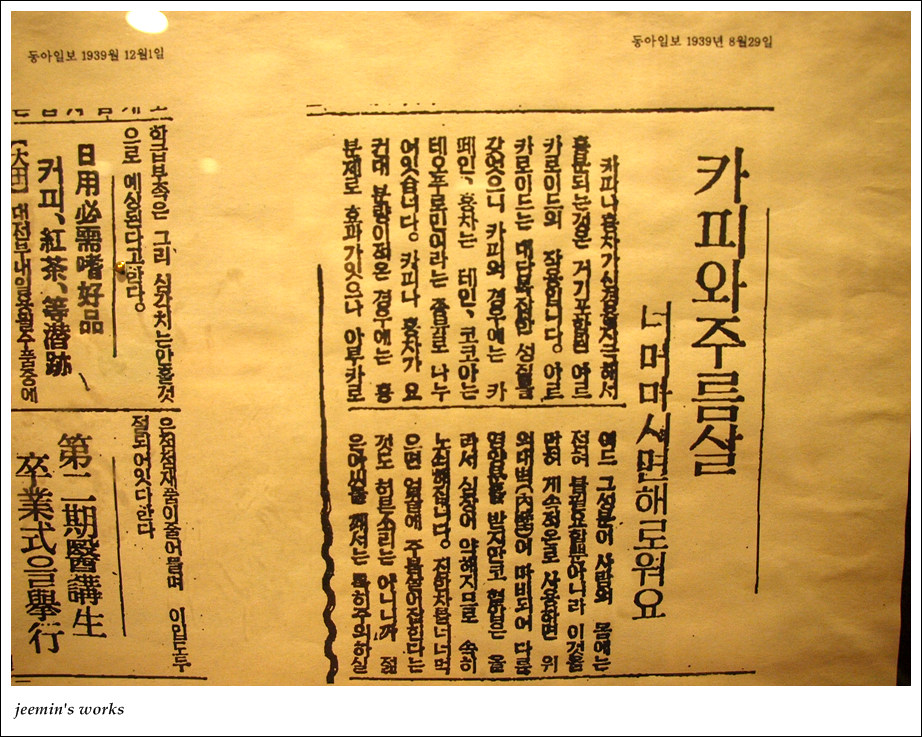 동아일보 1939년 8월29일
카피와주름살
너머마시면해로워요
카피나홍차가신경을자극해서
흥분되는것은 거기포함된 아르
카로이드의 작용입니다. 아르
카로이드는 대단복잡한 성질을
갖엇으니 카피의 경우에는 카
떼인、홍차는 테인、코코아는
테오부로민이라는 종류로 나누
어잇습니다. 카피나 홍차가 요
컨대 분량이적은 경우에는 흥
분제로 효과가잇으나 아루카로
이드 그성분이 사람의 몸에는
전혀 불필요할뿐아니라 이것을
만히 계속적으로 사용하면 위
의내벽(內壁)이 마비되어 다른
영양분을 받지안코 혈행은 올
라서 심장이 약해지므로 속히
노쇠해집니다. 진한차를너머먹
으면 얼굴에 주름살이잡힌다는
것도 허튼소리는 아니니까 젊
은아씨들 께서는 특히주의하실
동아일보 1939월 12월1일
학급부족은 그리 심각치는안흘것
으로 예상된다고한다。
日用必需嗜好品
커피、紅茶、等潜跡
【大田】대전부내일용필수품중에
은점점재품이줄어들며 이입도두
절되어잇다한다
第二期醫講生
卒業式을擧行
jeemin's works